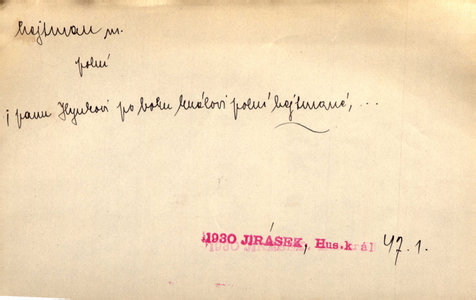 hejtman m.
polní
i panu Hynkovi po boku králově polní hejtmané, ...
1930 JIRÁSEK, Hus. král 47.1.